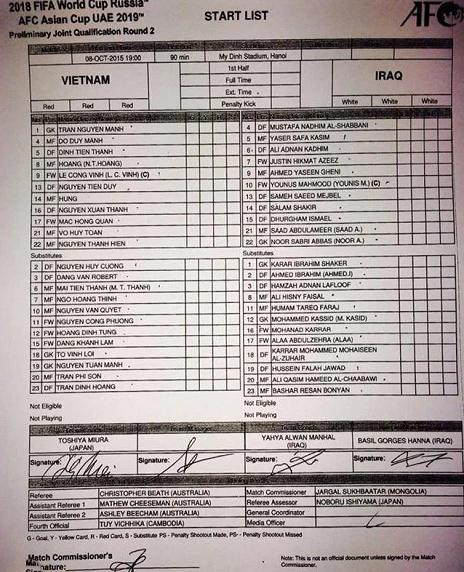 2018 FIFA World Cup Russia™
AFC Asian Cup UAE 2019™
Preliminary Joint Qualification Round 2
START LIST
AFC
08-OCT-2015 19:00 90 min My Dinh Stadium, Hanoi
VIETNAM
1st Half
Full Time
Ext. Time
Penalty Kick
IRAQ
Red Red Red
White White White
1 GK TRAN NGUYEN MANH
4 MF DO DUY MANH
5 DF DINH TIEN THANH
8 MF HOANG (N.T.HOANG)
9 FW LE CONG VINH (L. C. VINH) (C)
13 DF NGUYEN TIEN DUY
14 MF HUNG
16 DF NGUYEN XUAN THANH
17 FW MAC HONG QUAN
21 MF VO HUY TOAN
22 MF NGUYEN THANH HIEN
4 DF MUSTAFA NADHIM AL-SHABBANI
5 MF YASER SAFA KASIM
6 DF ALI ADNAN KADHIM
7 FW JUSTIN HIKMAT AZEEZ
9 MF AHMED YASEEN GHENI
10 FW YOUNUS MAHMOOD (YOUNIS M.) (C)
13 DF SAMEH SAEED MEJBEL
14 DF SALAM SHAKIR
15 DF DHURGHAM ISMAEL
21 MF SAAD ABDULAMEER (SAAD A.)
22 GK NOOR SABRI ABBAS (NOOR A.)
Substitutes
2 DF NGUYEN HUY CUONG
3 DF DANG VAN ROBERT
6 MF MAI TIEN THANH (M. T. THANH)
7 MF NGO HOANG THINH
10 MF NGUYEN VAN QUYET
11 FW NGUYEN CONG PHUONG
12 FW HOANG DINH TUNG
15 FW DANG KHANH LAM
18 GK TO VINH LOI
19 MF NGUYEN TUAN MANH
20 MF TRAN PHI SON
23 DF TRAN DINH HOANG
Substitutes
1 GK KARAR IBRAHIM SHAKER
2 DF AHMED IBRAHIM (AHMED.I)
3 DF HAMZAH ADNAN LAFLOOF
8 MF ALI HISNY FAISAL
11 MF HUMAM TAREQ FARAJ
12 GK MOHAMMED KASSID (M. KASID)
16 FW MOHANAD KARRAR
17 FW ALAA ABDULZEHRA (ALAA)
18 DF KARRAR MOHAMMED MOHAISEEN AL-ZUHAIR
19 DF HUSSEIN FALAH JAWAD
20 MF ALI QASIM HAMEED AL-CHAABAWI
23 MF BASHAR RESAN BONYAN
Not Eligible
Not Playing
Not Eligible
Not Playing
TOSHIYA MIURA
(JAPAN)
YAHYA ALWAN MANHAL
(IRAQ)
BASIL GORGES HANNA (IRAQ)
Signature: Signature: Signature: Signature:
Referee CHRISTOPHER BEATH (AUSTRALIA)
Assistant Referee 1 MATHEW CHEESEMAN (AUSTRALIA)
Assistant Referee 2 ASHLEY BEECHAM (AUSTRALIA)
Fourth Official TUY VICHHIKA (CAMBODIA)
Match Commissioner JARGAL SUKHBAATAR (MONGOLIA)
Referee Assessor NOBORU ISHIYAMA (JAPAN)
General Coordinator
Media Officer
G - Goal, Y - Yellow Card, R - Red Card, S - Substitute PS - Penalty Shootout Made, PS- - Penalty Shootout Missed
Match Commissioner's
Signature:
Note: This is not an official document unless signed by the Match Commissioner.